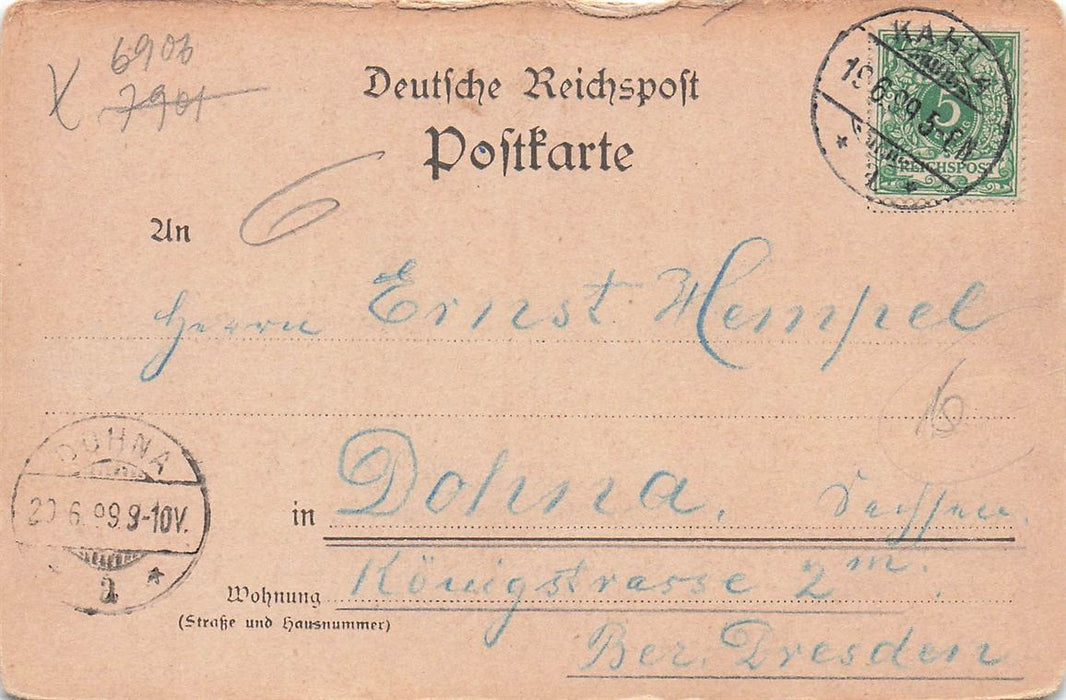 6906
7901
Deutsche Reichspost
Postkarte
KAHLA
19.6.99.5-6N.
* a *
5
REICHSPOST
An
6
Herrn Ernst Hempel
6
DOHNA
20.6.99.9-10V.
* a *
in Dohna. Sachsen.
Wohnung Königstrasse 2 m.
(Straße und Hausnummer)
Bez. Dresden